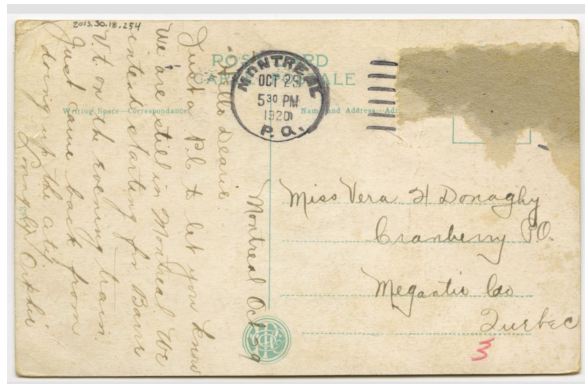 2013.30.18.254
POSTCARD
CARTE POSTALE
Writing Space—Correspondence
Name and Address
MONTREAL
OCT 29
5 30 PM
1920
P.Q.
Montreal Oct 29
Hello Dearie.
Just a P.C. to let you know
we are still in Montreal We
intend starting for Barre
Vt. on the evening train
Just came back from
doing up the city
Miss Vera H Donaghy
Cranberry P.O.
Megantic Co
Quebec
3